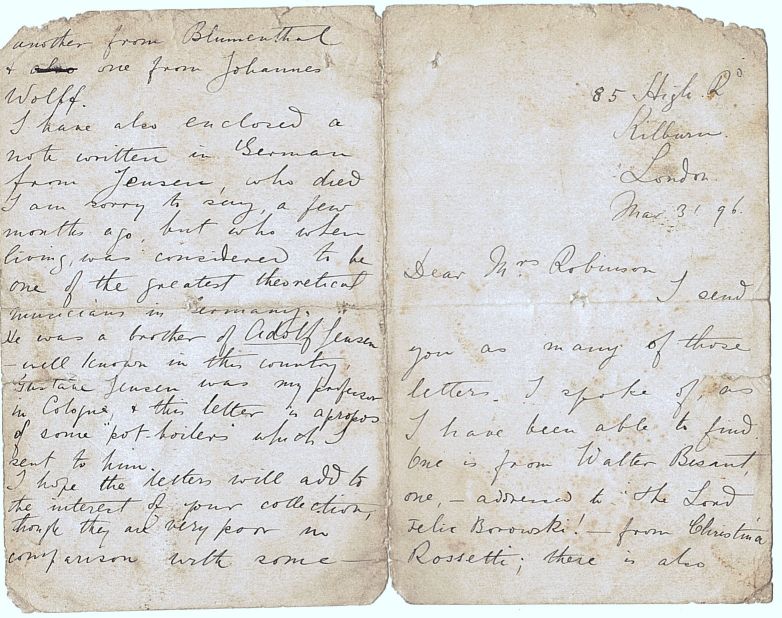 85 High Rd
Kilburn
London
Mar 31 96.
Dear Mrs Robinson
I send
you as many of those
letters I spoke of as
I have been able to find.
One is from Walter Besant,
one, – addressed to "The Lord
Felix Borowski! – from Christina
Rossetti; there is also
another from Blumenthal
& also one from Johannes
Wolff.
I have also enclosed a
note written in German
from Jensen, who died
I am sorry to say, a few
months ago, but who when
living, was considered to be
one of the greatest theoretical
musicians in Germany.
He was a brother of Adolf Jensen
– well known in this country.
Gustave Jensen was my professor
in Cologne, & this letter is apropos
of some "pot-boilers" which I
sent to him.
I hope the letters will add to
the interest of your collection,
though they are very poor in
comparison with some –